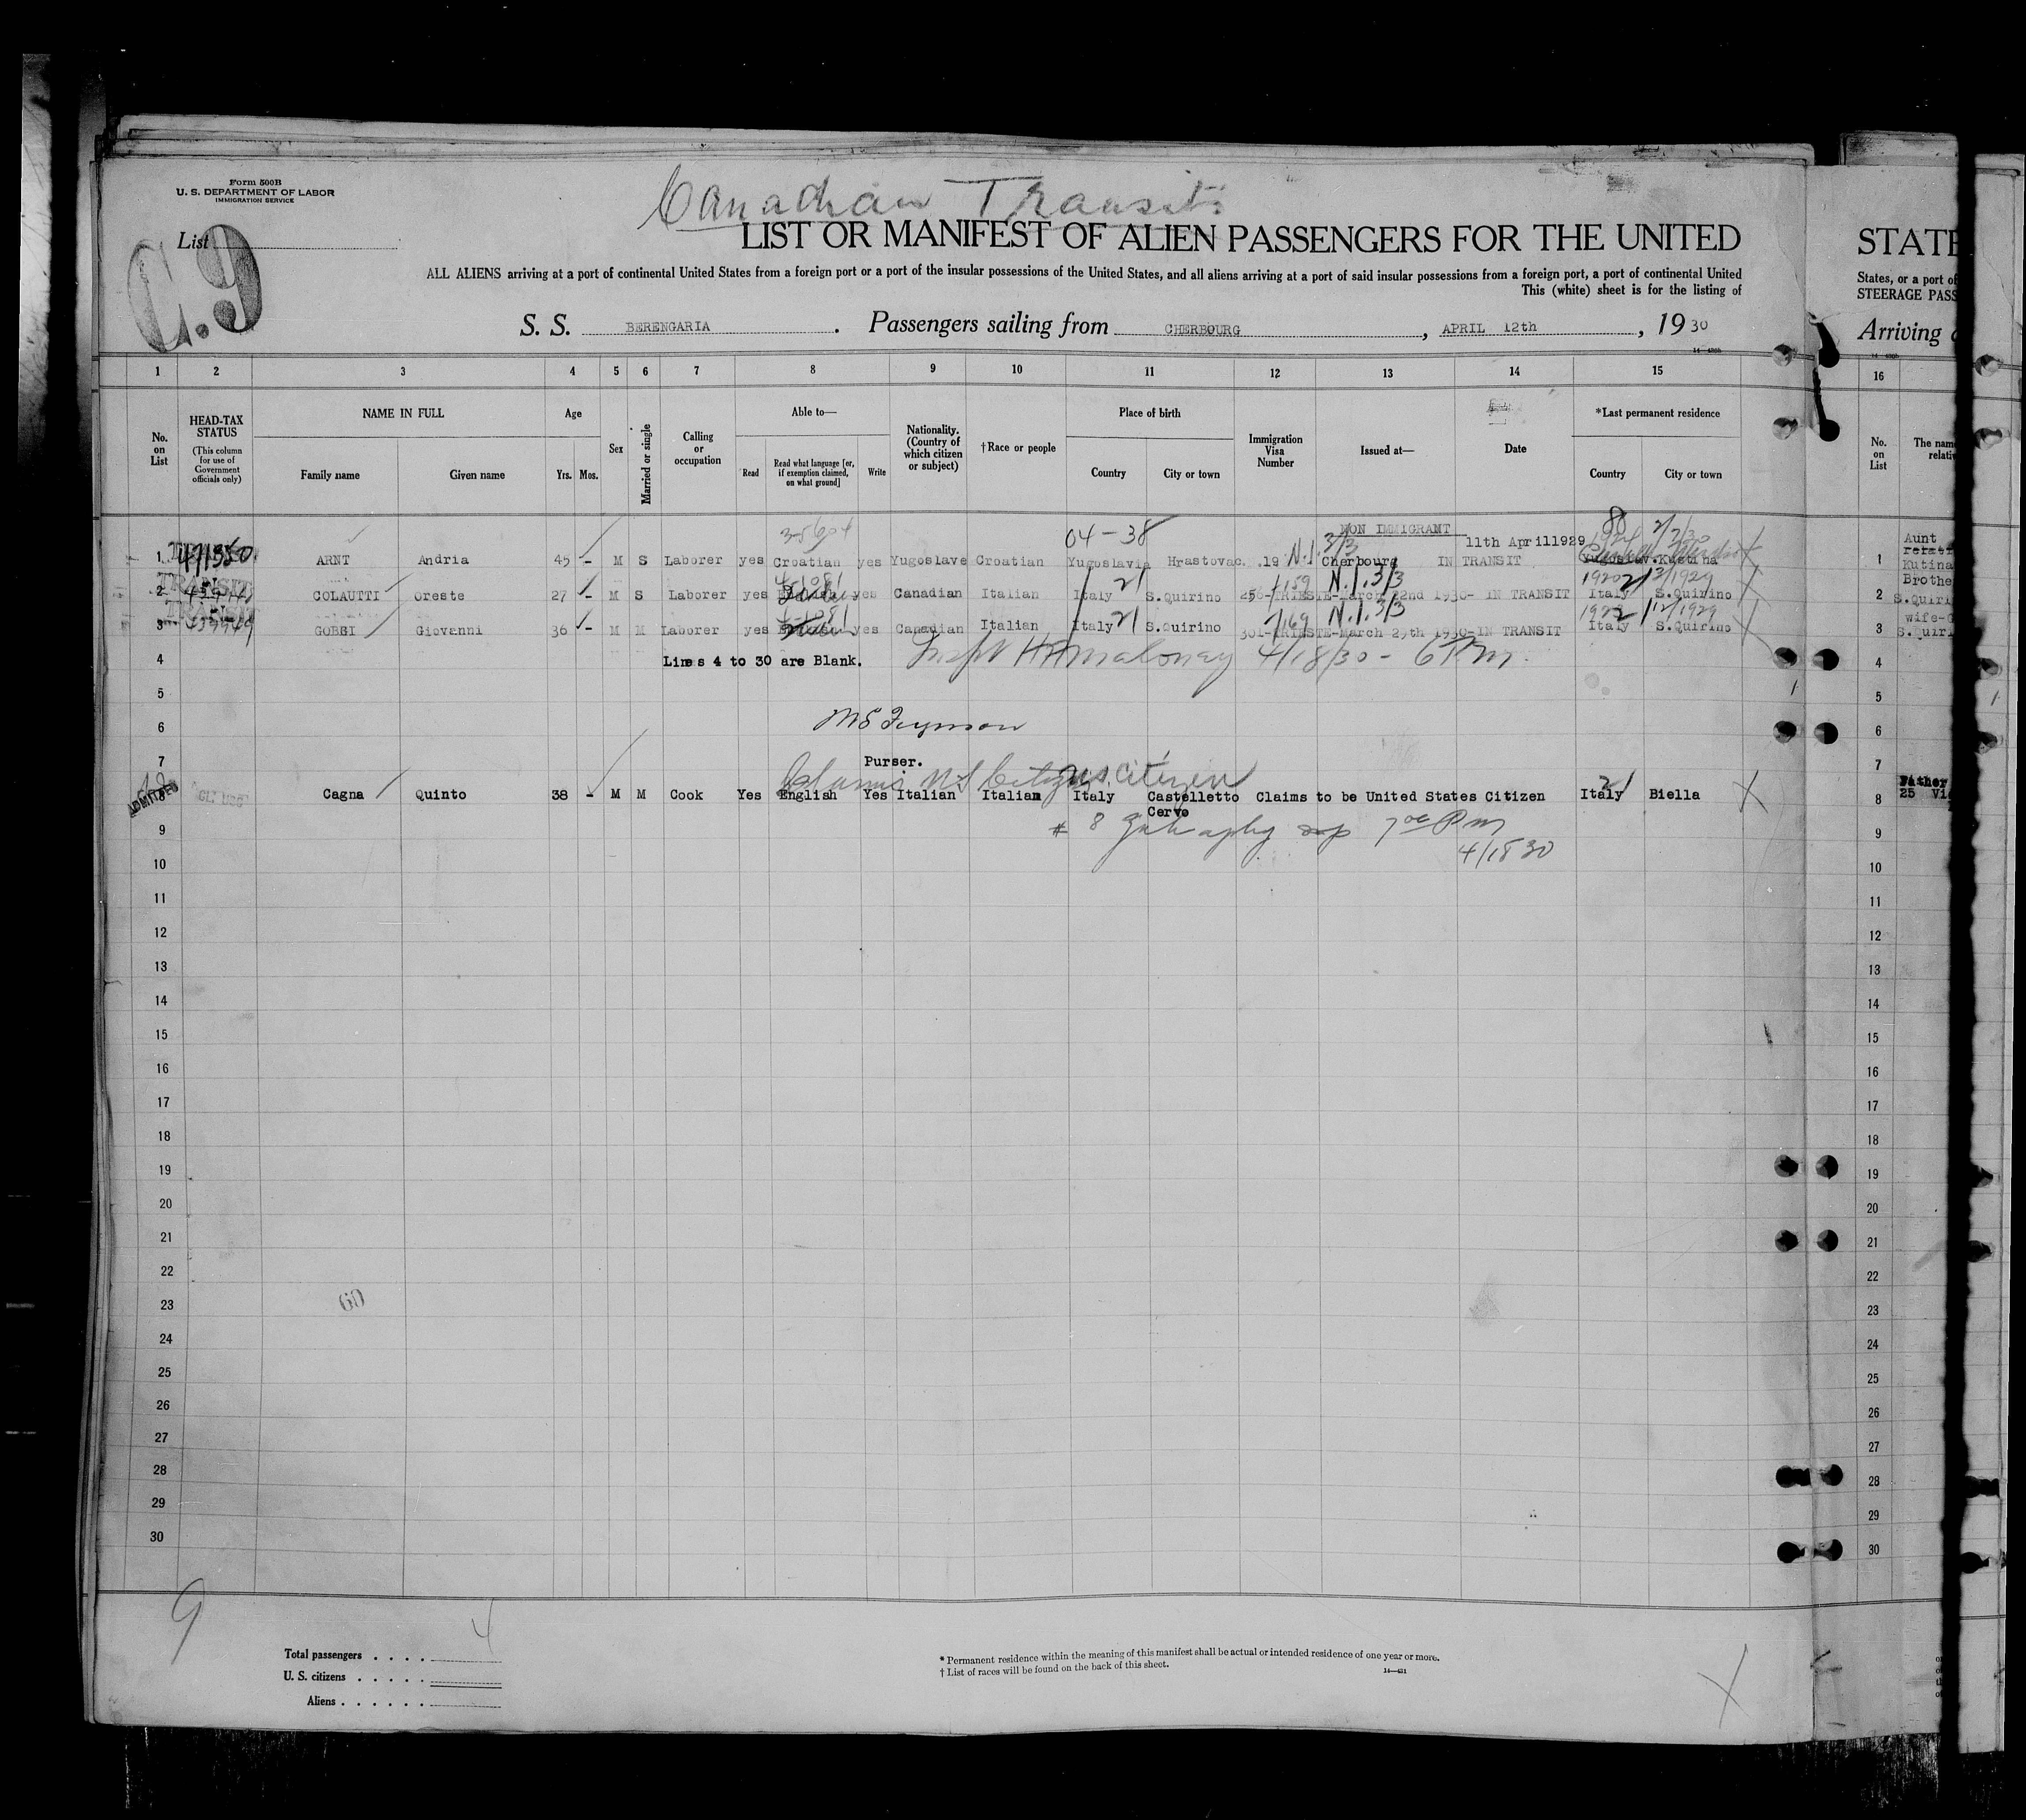 Form 500B
U. S. DEPARTMENT OF LABOR
IMMIGRATION SERVICE
Canadian Transits
List
C.9
LIST OR MANIFEST OF ALIEN PASSENGERS FOR THE UNITED
ALL ALIENS arriving at a port of continental United States from a foreign port or a port of the insular possessions of the United States, and all aliens arriving at a port of said insular possessions from a foreign port, a port of continental United
This (white) sheet is for the listing of
S. S. BERENGARIA. Passengers sailing from CHERBOURG, APRIL 12th, 1930
STATE
States, or a port of
STEERAGE PASS
Arriving
1 2 3 4 5 6 7 8 9 10 11 12 13 14 15 16
No. on List
HEAD-TAX STATUS
(This column for use of Government officials only)
NAME IN FULL
Family name Given name
Age
Yrs. Mos.
Sex
Married or single
Calling or occupation
Able to—
Read
Read what language [or, if exemption claimed, on what ground]
Write
Nationality. (Country of which citizen or subject)
†Race or people
Place of birth
Country City or town
Immigration Visa Number
Issued at—
Date
*Last permanent residence
Country City or town
No. on List
The name
relativ
04-38 NON IMMIGRANT 11th April1929
1 ARNT Andria 45 - M S Laborer yes Croatian yes Yugoslave Croatian Yugoslavia Hrastovac. .19 N.I. 3/3 Cherbourg IN TRANSIT Yugoslav. Kustina 1 Aunt
Kutina
TRANSIT
2 COLAUTTI Oreste 27 - M S Laborer yes yes Canadian Italian Italy S.Quirino 256-TRIESTE-March 22nd 1930- IN TRANSIT Italy S.Quirino 2 Brothe
S.Quiri
N.I. 3/3
TRANSIT
3 439949 GOBBI Giovanni 36 - M M Laborer yes yes Canadian Italian Italy S.Quirino 301-TRIESTE-March 29th 1930-IN TRANSIT Italy S.Quirino 3 wife-G
S.Quiri
N.I. 3/3
4 Lines 4 to 30 are Blank. Insp HMaloney 4/18/30 - 6 Pm. 4
5 5
6 6
7 Purser. 7
Claims US Citizen US Citizen
ADMITTED
8 Cagna Quinto 38 - M M Cook Yes English Yes Italian Italian Italy Castelletto Cervo Claims to be United States Citizen Italy Biella 8 Father
25 Vi
9 # 8 7 00 Pm 9
10 4/18 30 10
11 11
12 12
13 13
14 14
15 15
16 16
17 17
18 18
19 19
20 20
21 21
22 22
23 60 23
24 24
25 25
26 26
27 27
28 28
29 29
30 30
9
4
Total passengers . . . .
U. S. citizens . . . . .
Aliens . . . . . .
* Permanent residence within the meaning of this manifest shall be actual or intended residence of one year or more.
† List of races will be found on the back of this sheet.